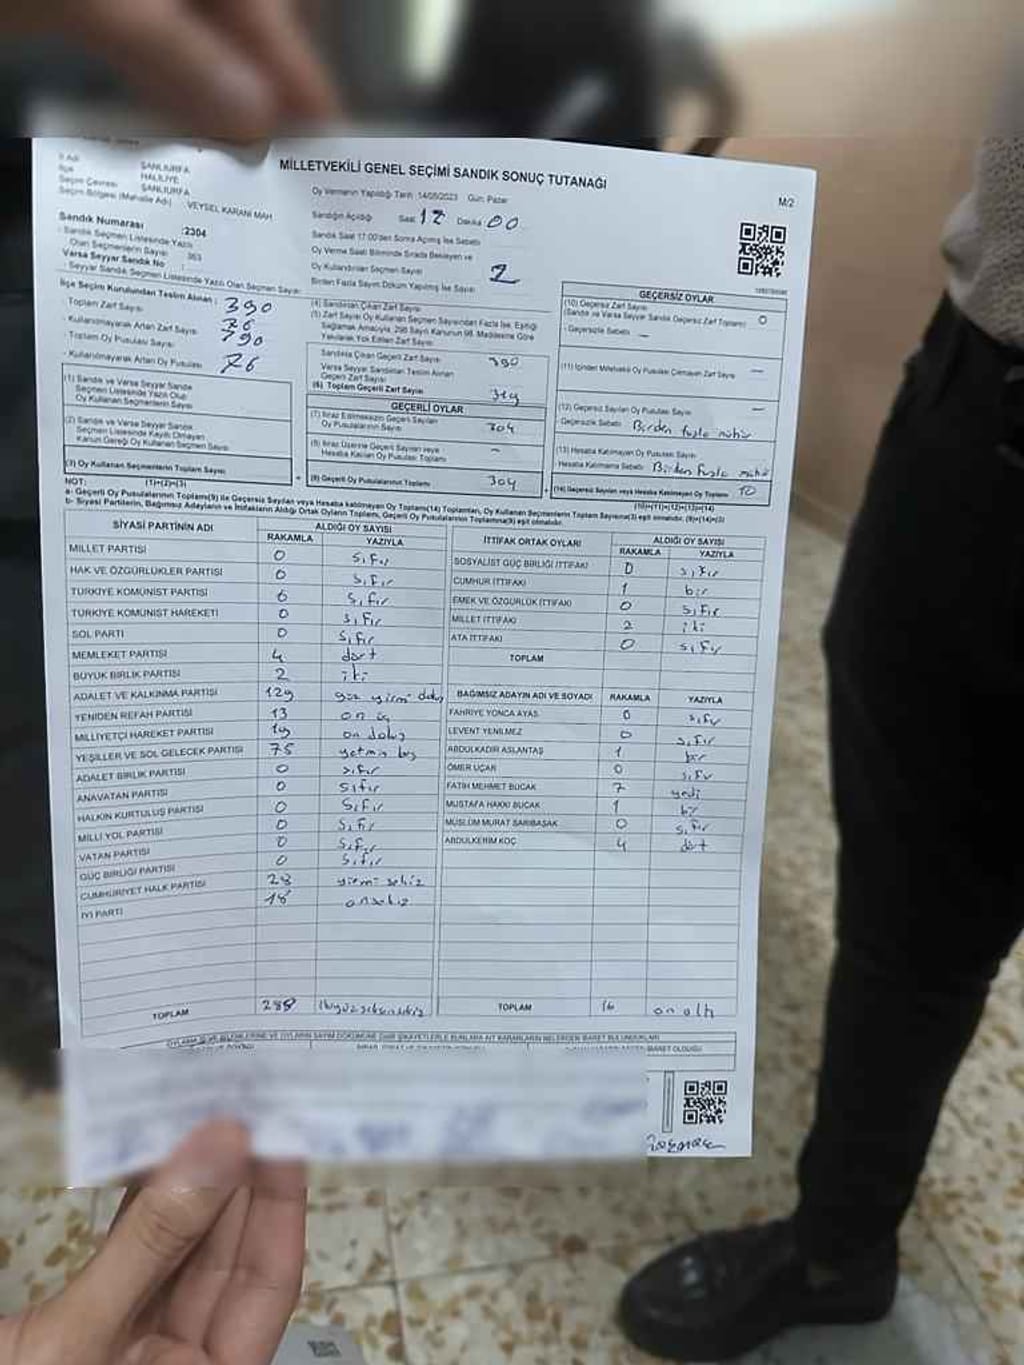 MİLLETVEKİLİ GENEL SEÇİMİ SANDIK SONUÇ TUTANAĞI
M/2
İl Adı ŞANLIURFA
İlçe HALİLİYE
Seçim Çevresi ŞANLIURFA
Seçim Bölgesi (Mahalle Adı) VEYSEL KARANİ MAH
Oy Vermenin Yapıldığı Tarih 14/05/2023 Gün: Pazar
Sandığın Açıldığı Saat 17 Dakika 00
Sandık Saat 17:00'den Sonra Açılmış İse Sebebi
Oy Verme Saati Bitiminde Sırada Bekleyen ve
Oy Kullandırılan Seçmen Sayısı 2
Birden Fazla Sayım Döküm Yapılmış İse Sayısı
Sandık Numarası :2304
- Sandık Seçmen Listesinde Yazılı
Olan Seçmenlerin Sayısı 363
Varsa Seyyar Sandık No :
- Seyyar Sandık Seçmen Listesinde Yazılı Olan Seçmen Sayısı:
İlçe Seçim Kurulundan Teslim Alınan :
- Toplam Zarf Sayısı : 390
- Kullanılmayarak Artan Zarf Sayısı : 76
- Toplam Oy Pusulası Sayısı : 390
- Kullanılmayarak Artan Oy Pusulası : 76
(1) Sandık ve Varsa Seyyar Sandık
Seçmen Listesinde Yazılı Olup
Oy Kullanan Seçmenlerin Sayısı
(2) Sandık ve Varsa Seyyar Sandık
Seçmen Listesinde Kayıtlı Olmayan
Kanun Gereği Oy Kullanan Seçmen Sayısı
(3) Oy Kullanan Seçmenlerin Toplam Sayısı (1)+(2)=(3)
(4) Sandıktan Çıkan Zarf Sayısı
(5) Zarf Sayısı Oy Kullanan Seçmen Sayısından Fazla İse, Eşitliği
Sağlamak Amacıyla, 298 Sayılı Kanunun 98. Maddesine Göre
Yakılarak Yok Edilen Zarf Sayısı
Sandıkta Çıkan Geçerli Zarf Sayısı
Varsa Seyyar Sandıktan Teslim Alınan
Geçerli Zarf Sayısı
(6) Toplam Geçerli Zarf Sayısı
GEÇERLİ OYLAR
(7) İtiraz Edilmeksizin Geçerli Sayılan
Oy Pusulalarının Sayısı 304
(8) İtiraz Üzerine Geçerli Sayılan veya
Hesaba Katılan Oy Pusulası Toplamı –
(9) Geçerli Oy Pusulalarının Toplamı 304
GEÇERSİZ OYLAR
(10) Geçersiz Zarf Sayısı
(Sandık ve Varsa Seyyar Sandık Geçersiz Zarf Toplamı) 0
- Geçersizlik Sebebi –
(11) İçinden Milletvekili Oy Pusulası Çıkmayan Zarf Sayısı –
(12) Geçersiz Sayılan Oy Pusulası Sayısı –
- Geçersizlik Sebebi Birden fazla mühür
(13) Hesaba Katılmayan Oy Pusulası Sayısı
- Hesaba Katılmama Sebebi Birden fazla mühür
(14) Geçersiz Sayılan veya Hesaba Katılmayan Oy Toplamı 10
(10)+(11)+(12)+(13)=(14)
NOT:
a- Geçerli Oy Pusulalarının Toplamı(9) ile Geçersiz Sayılan veya Hesaba Katılmayan Oy Toplamı(14) Toplamları, Oy Kullanan Seçmenlerin Toplam Sayısına(3) eşit olmalıdır. (9)+(14)=(3)
b- Siyasi Partilerin, Bağımsız Adayların ve İttifakların Aldığı Ortak Oyların Toplamı, Geçerli Oy Pusulalarının Toplamına(9) eşit olmalıdır.
SİYASİ PARTİNİN ADI ALDIĞI OY SAYISI
RAKAMLA YAZIYLA
MİLLET PARTİSİ 0 sıfır
HAK VE ÖZGÜRLÜKLER PARTİSİ 0 sıfır
TÜRKİYE KOMÜNİST PARTİSİ 0 sıfır
TÜRKİYE KOMÜNİST HAREKETİ 0 sıfır
SOL PARTİ 0 sıfır
MEMLEKET PARTİSİ 4 dört
BÜYÜK BİRLİK PARTİSİ 2 iki
ADALET VE KALKINMA PARTİSİ 129 yüz yirmi dokuz
YENİDEN REFAH PARTİSİ 13 on üç
MİLLİYETÇİ HAREKET PARTİSİ 19 on dokuz
YEŞİLLER VE SOL GELECEK PARTİSİ 75 yetmiş beş
ADALET BİRLİK PARTİSİ 0 sıfır
ANAVATAN PARTİSİ 0 sıfır
HALKIN KURTULUŞ PARTİSİ 0 sıfır
MİLLİ YOL PARTİSİ 0 sıfır
VATAN PARTİSİ 0 sıfır
GÜÇ BİRLİĞİ PARTİSİ 0 sıfır
CUMHURİYET HALK PARTİSİ 28 yirmi sekiz
İYİ PARTİ 18 onsekiz
TOPLAM 288 ikiyüzseksensekiz
İTTİFAK ORTAK OYLARI ALDIĞI OY SAYISI
RAKAMLA YAZIYLA
SOSYALİST GÜÇ BİRLİĞİ İTTİFAKI 0 sıfır
CUMHUR İTTİFAKI 1 bir
EMEK VE ÖZGÜRLÜK İTTİFAKI 0 sıfır
MİLLET İTTİFAKI 2 iki
ATA İTTİFAKI 0 sıfır
TOPLAM
BAĞIMSIZ ADAYIN ADI VE SOYADI RAKAMLA YAZIYLA
FAHRİYE YONCA AYAS 0 sıfır
LEVENT YENİLMEZ 0 sıfır
ABDULKADİR ASLANTAŞ 1 bir
ÖMER UÇAR 0 sıfır
FATİH MEHMET BUCAK 7 yedi
MUSTAFA HAKKI BUCAK 1 bir
MÜSLÜM MURAT SARIBAŞAK 0 sıfır
ABDULKERİM KOÇ 4 dört
TOPLAM 16 on altı